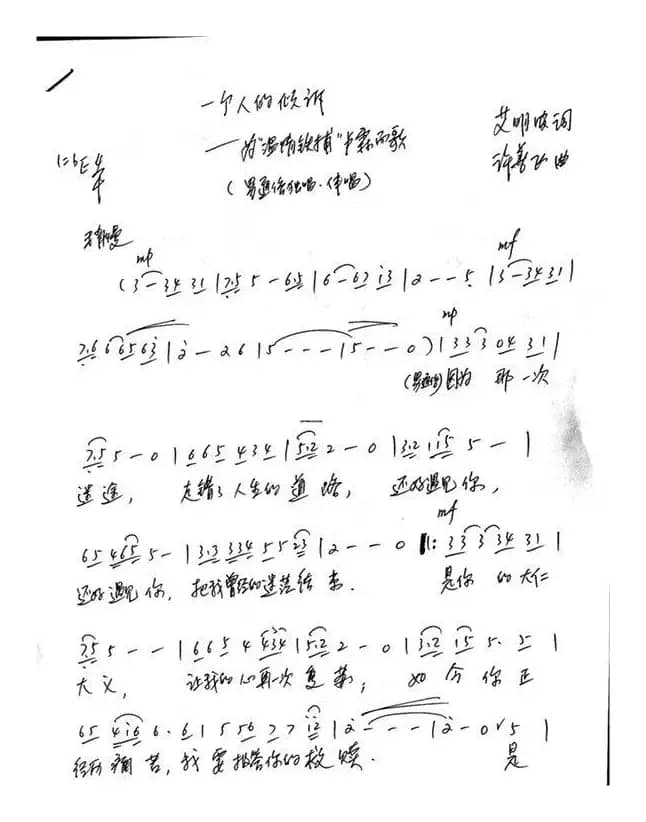 一个人的倾诉
——为"温情铁捕"卢霖而歌
(男通俗独唱·伴唱)
艾明波词
许善飞曲
1=bE 4/4
稍慢
mp mf
(3 - 34 31 | 75 5 - 65 | 6 - 67 13 | 2 - - 5 | 3 - 34 31 |
mp
76 6 65 63 | 2 - 2 6 | 5 - - - | 5 - - 0 ) | 33 3 04 31 |
因为 那一次
75 5 - 0 | 665 434 | 52 2 - 0 | 32 115 5 - |
迷途, 走错了人生的道路, 还好遇见你,
mf
65 465 5 - | 33 334 55 23 | 2 - - 0 |: 33 3 34 31 |
还好遇见你, 把我曾经的迷茫结束. 是你 的大仁
75 5 - - | 665 4 434 | 52 2 - 0 | 32 15 5. 5 |
大义, 让我的心再一次复苏; 如今你正
65 416 6. 6 1 5 56 7 7 12 | 2 - - - | 2 - 0 5 |
经历痛苦,我要报答你的救赎. 是